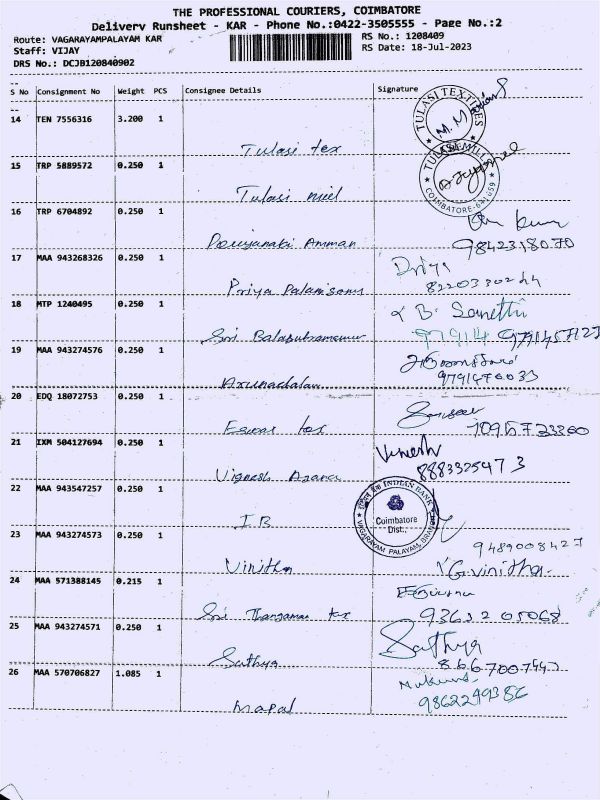 THE PROFESSIONAL COURIERS, COIMBATORE
Delivery Runsheet - KAR - Phone No.:0422-3505555 - Page No.:2
Route: VAGARAYAMPALAYAM KAR
RS No.: 1208409
Staff: VIJAY
RS Date: 18-Jul-2023
DRS No.: DCJB120840902
S No Consignment No Weight PCS Consignee Details Signature
14 TEN 7556316 3.200 1
TULASI TEXTILES
Tulasi tex
15 TRP 5889572 0.250 1
TULASI MILL
COIMBATORE-641659
Tulasi mill
16 TRP 6704892 0.250 1
Amman
9842318070
17 MAA 943268326 0.250 1
Priya
Priya Palanisamy
18 MTP 1240495 0.250 1
B.
97914 9791457127
Sri
19 MAA 943274576 0.250 1
Arunachalam
9791476033
20 EDQ 18072753 0.250 1
Eswar tex
21 IXM 504127694 0.250 1
Vignesh
8883325473
22 MAA 943547257 0.250 1
INDIAN BANK
Coimbatore
Dist.,
VAGARAYAM PALAYAM BRANCH
IB
23 MAA 943274573 0.250 1
9489008427
Vinitha
V.G.Vinitha.
24 MAA 571388145 0.215 1
Sri tex
25 MAA 943274571 0.250 1
Sathya
Sathya
8667007447
26 MAA 570706827 1.085 1
9862249386